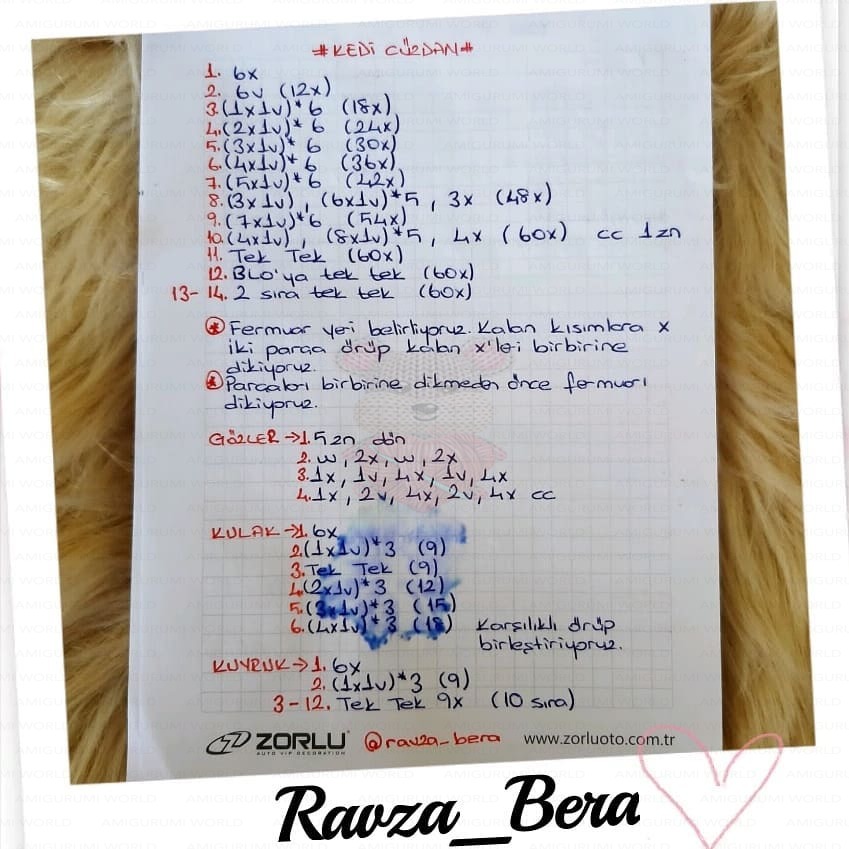 #KEDİ CÜZDAN#
1. 6x
2. 6v (12x)
3.(1x1v)*6 (18x)
4.(2x1v)*6 (24x)
5.(3x1v)*6 (30x)
6.(4x1v)*6 (36x)
7.(5x1v)*6 (42x)
8.(3x1v), (6x1v)*5, 3x (48x)
9.(7x1v)*6 (54x)
10.(4x1v), (8x1v)*5, 4x (60x) cc 1zn
11. Tek Tek (60x)
12. BLO'ya tek tek (60x)
13-14. 2 sıra tek tek (60x)
* Fermuar yeri belirliyoruz. Kalan kısımlara x
iki parça örüp kalan x'leri birbirine
dikiyoruz.
* Parçaları birbirine dikmeden önce fermuarı
dikiyoruz.
GÖZLER →1. 5zn dön
2. w, 2x, w, 2x
3. 1x, 1v, 4x, 1v, 4x
4. 1x, 2v, 4x, 2v, 4x cc
KULAK →1. 6x
2.(1x1v)*3 (9)
3. Tek Tek (9)
4.(2x1v)*3 (12)
5.(3x1v)*3 (15)
6.(4x1v)*3 (18) Karşılıklı örüp
birleştiriyoruz.
KUYRUK →1. 6x
2. (1x1v)*3 (9)
3-12. Tek Tek 9x (10 sıra)
ZORLU @ravza_bera www.zorluoto.com.tr
AUTO VIP DECORATION
Ravza_Bera
AMIGURUMI WORLD